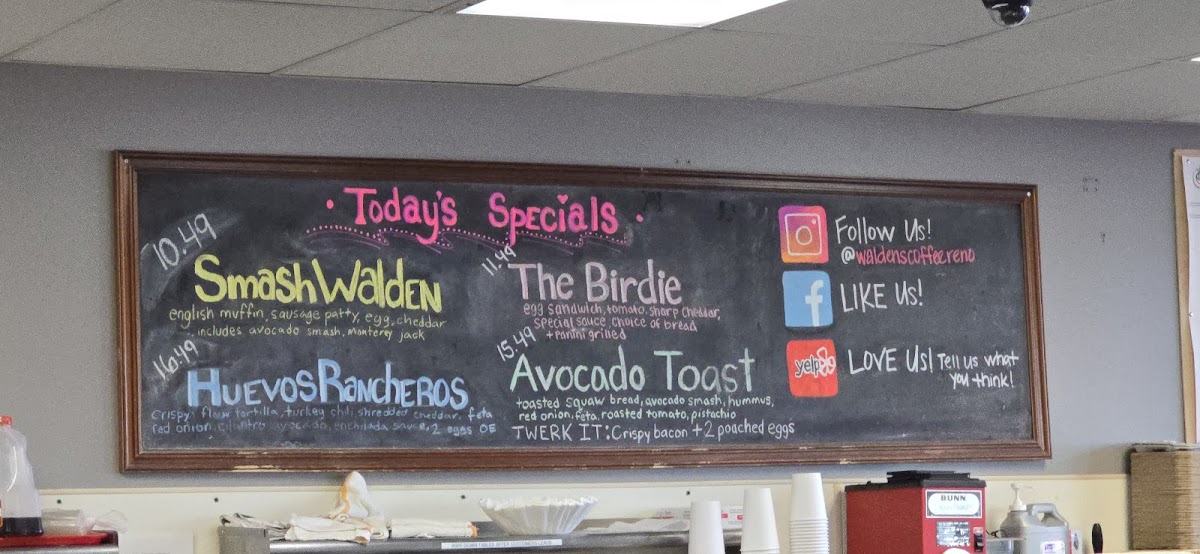 • Today's Specials •
10.49
SmashWalden
english muffin, sausage patty, egg, cheddar
includes avocado smash, monterey jack
11.49
The Birdie
egg sandwich, tomato, sharp cheddar,
special sauce, choice of bread
+ panini grilled
16.49
Huevos Rancheros
Crispy flour tortilla, turkey chili, shredded cheddar, feta
red onion, cilantro, avocado, enchilada sauce, 2 eggs OE
15.49
Avocado Toast
toasted squaw bread, avocado smash, hummus,
red onion, feta, roasted tomato, pistachio
TWERK IT: Crispy bacon + 2 poached eggs
Follow Us!
@waldenscoffeereno
f
LIKE Us!
yelp
LOVE Us! Tell us what
you think!
BUNN